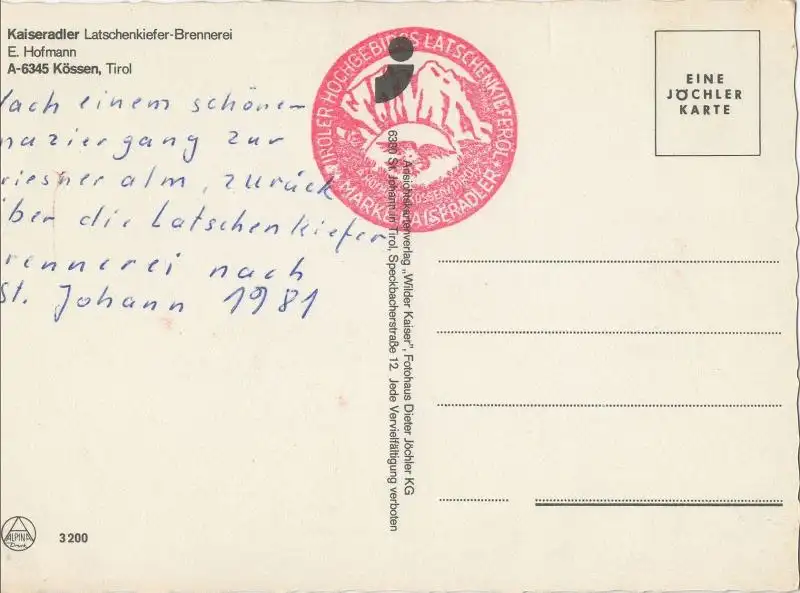 Kaiseradler Latschenkiefer-Brennerei
E. Hofmann
A-6345 Kössen, Tirol
ach einem schönen
paziergang zur
riesner alm, zurück
über die Latschenkiefer
rennerei nach
St. Johann 1981
TIROLER HOCHGEBIRGS LATSCHENKIEFERÖL
MARKE KAISERADLER
KÖSSEN/TIROL
EINE
JÖCHLER
KARTE
Ansichtskartenverlag „Wilder Kaiser", Fotohaus Dieter Jöchler KG
6380 St. Johann in Tirol, Speckbacherstraße 12. Jede Vervielfältigung verboten
ALPINA
Druck
3200